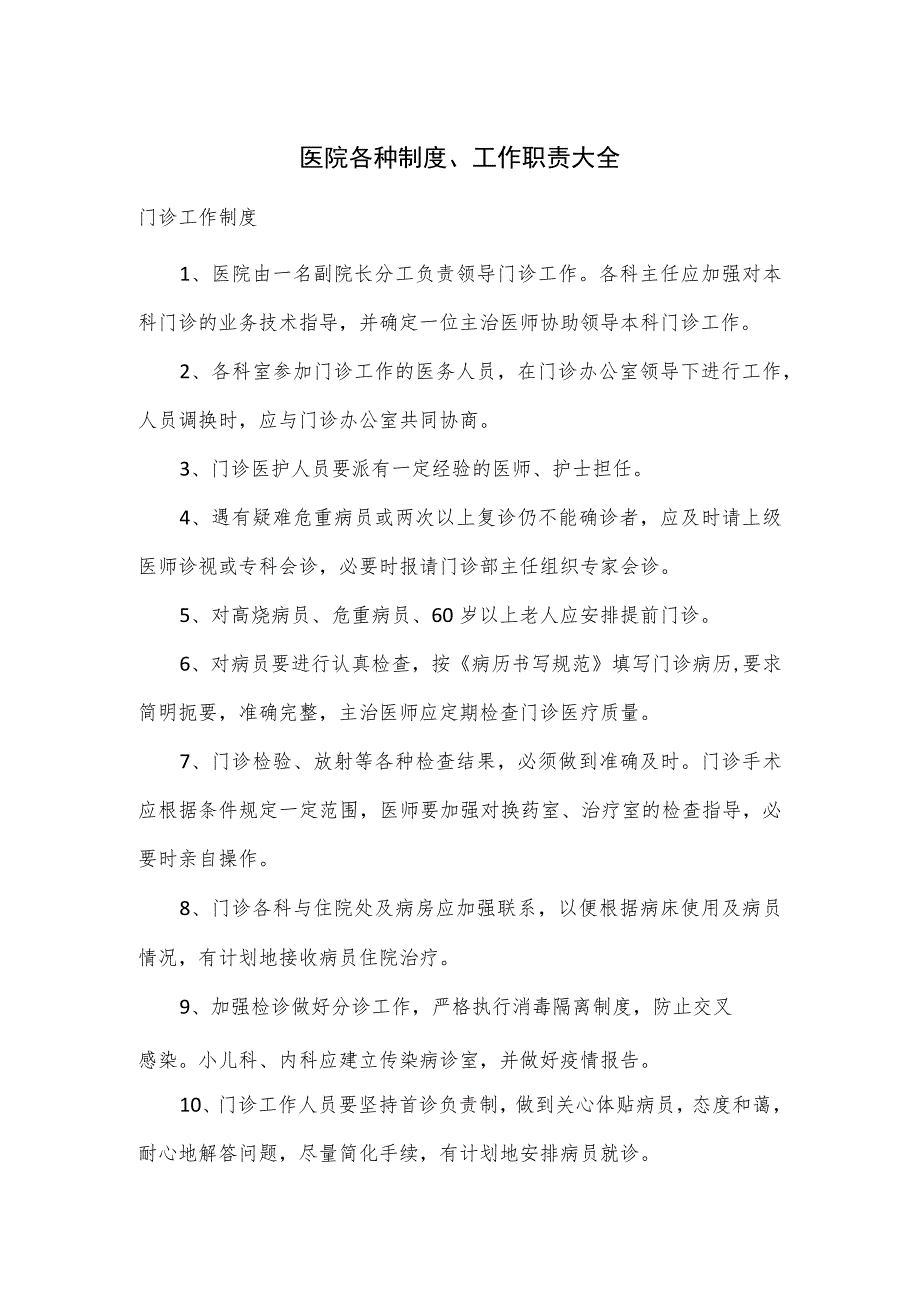 医院各种制度、工作职责大全
门诊工作制度
1、医院由一名副院长分工负责领导门诊工作。各科主任应加强对本
科门诊的业务技术指导，并确定一位主治医师协助领导本科门诊工作。
2、各科室参加门诊工作的医务人员，在门诊办公室领导下进行工作，
人员调换时，应与门诊办公室共同协商。
3、门诊医护人员要派有一定经验的医师、护士担任。
4、遇有疑难危重病员或两次以上复诊仍不能确诊者，应及时请上级
医师诊视或专科会诊，必要时报请门诊部主任组织专家会诊。
5、对高烧病员、危重病员、60 岁以上老人应安排提前门诊。
6、对病员要进行认真检查，按《病历书写规范》填写门诊病历,要求
简明扼要，准确完整，主治医师应定期检查门诊医疗质量。
7、门诊检验、放射等各种检查结果，必须做到准确及时。门诊手术
应根据条件规定一定范围，医师要加强对换药室、治疗室的检查指导，必
要时亲自操作。
8、门诊各科与住院处及病房应加强联系，以便根据病床使用及病员
情况，有计划地接收病员住院治疗。
9、加强检诊做好分诊工作，严格执行消毒隔离制度，防止交叉
感染。小儿科、内科应建立传染病诊室，并做好疫情报告。
10、门诊工作人员要坚持首诊负责制，做到关心体贴病员，态度和蔼，
耐心地解答问题，尽量简化手续，有计划地安排病员就诊。